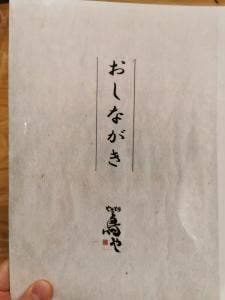 おしながき
鳥や